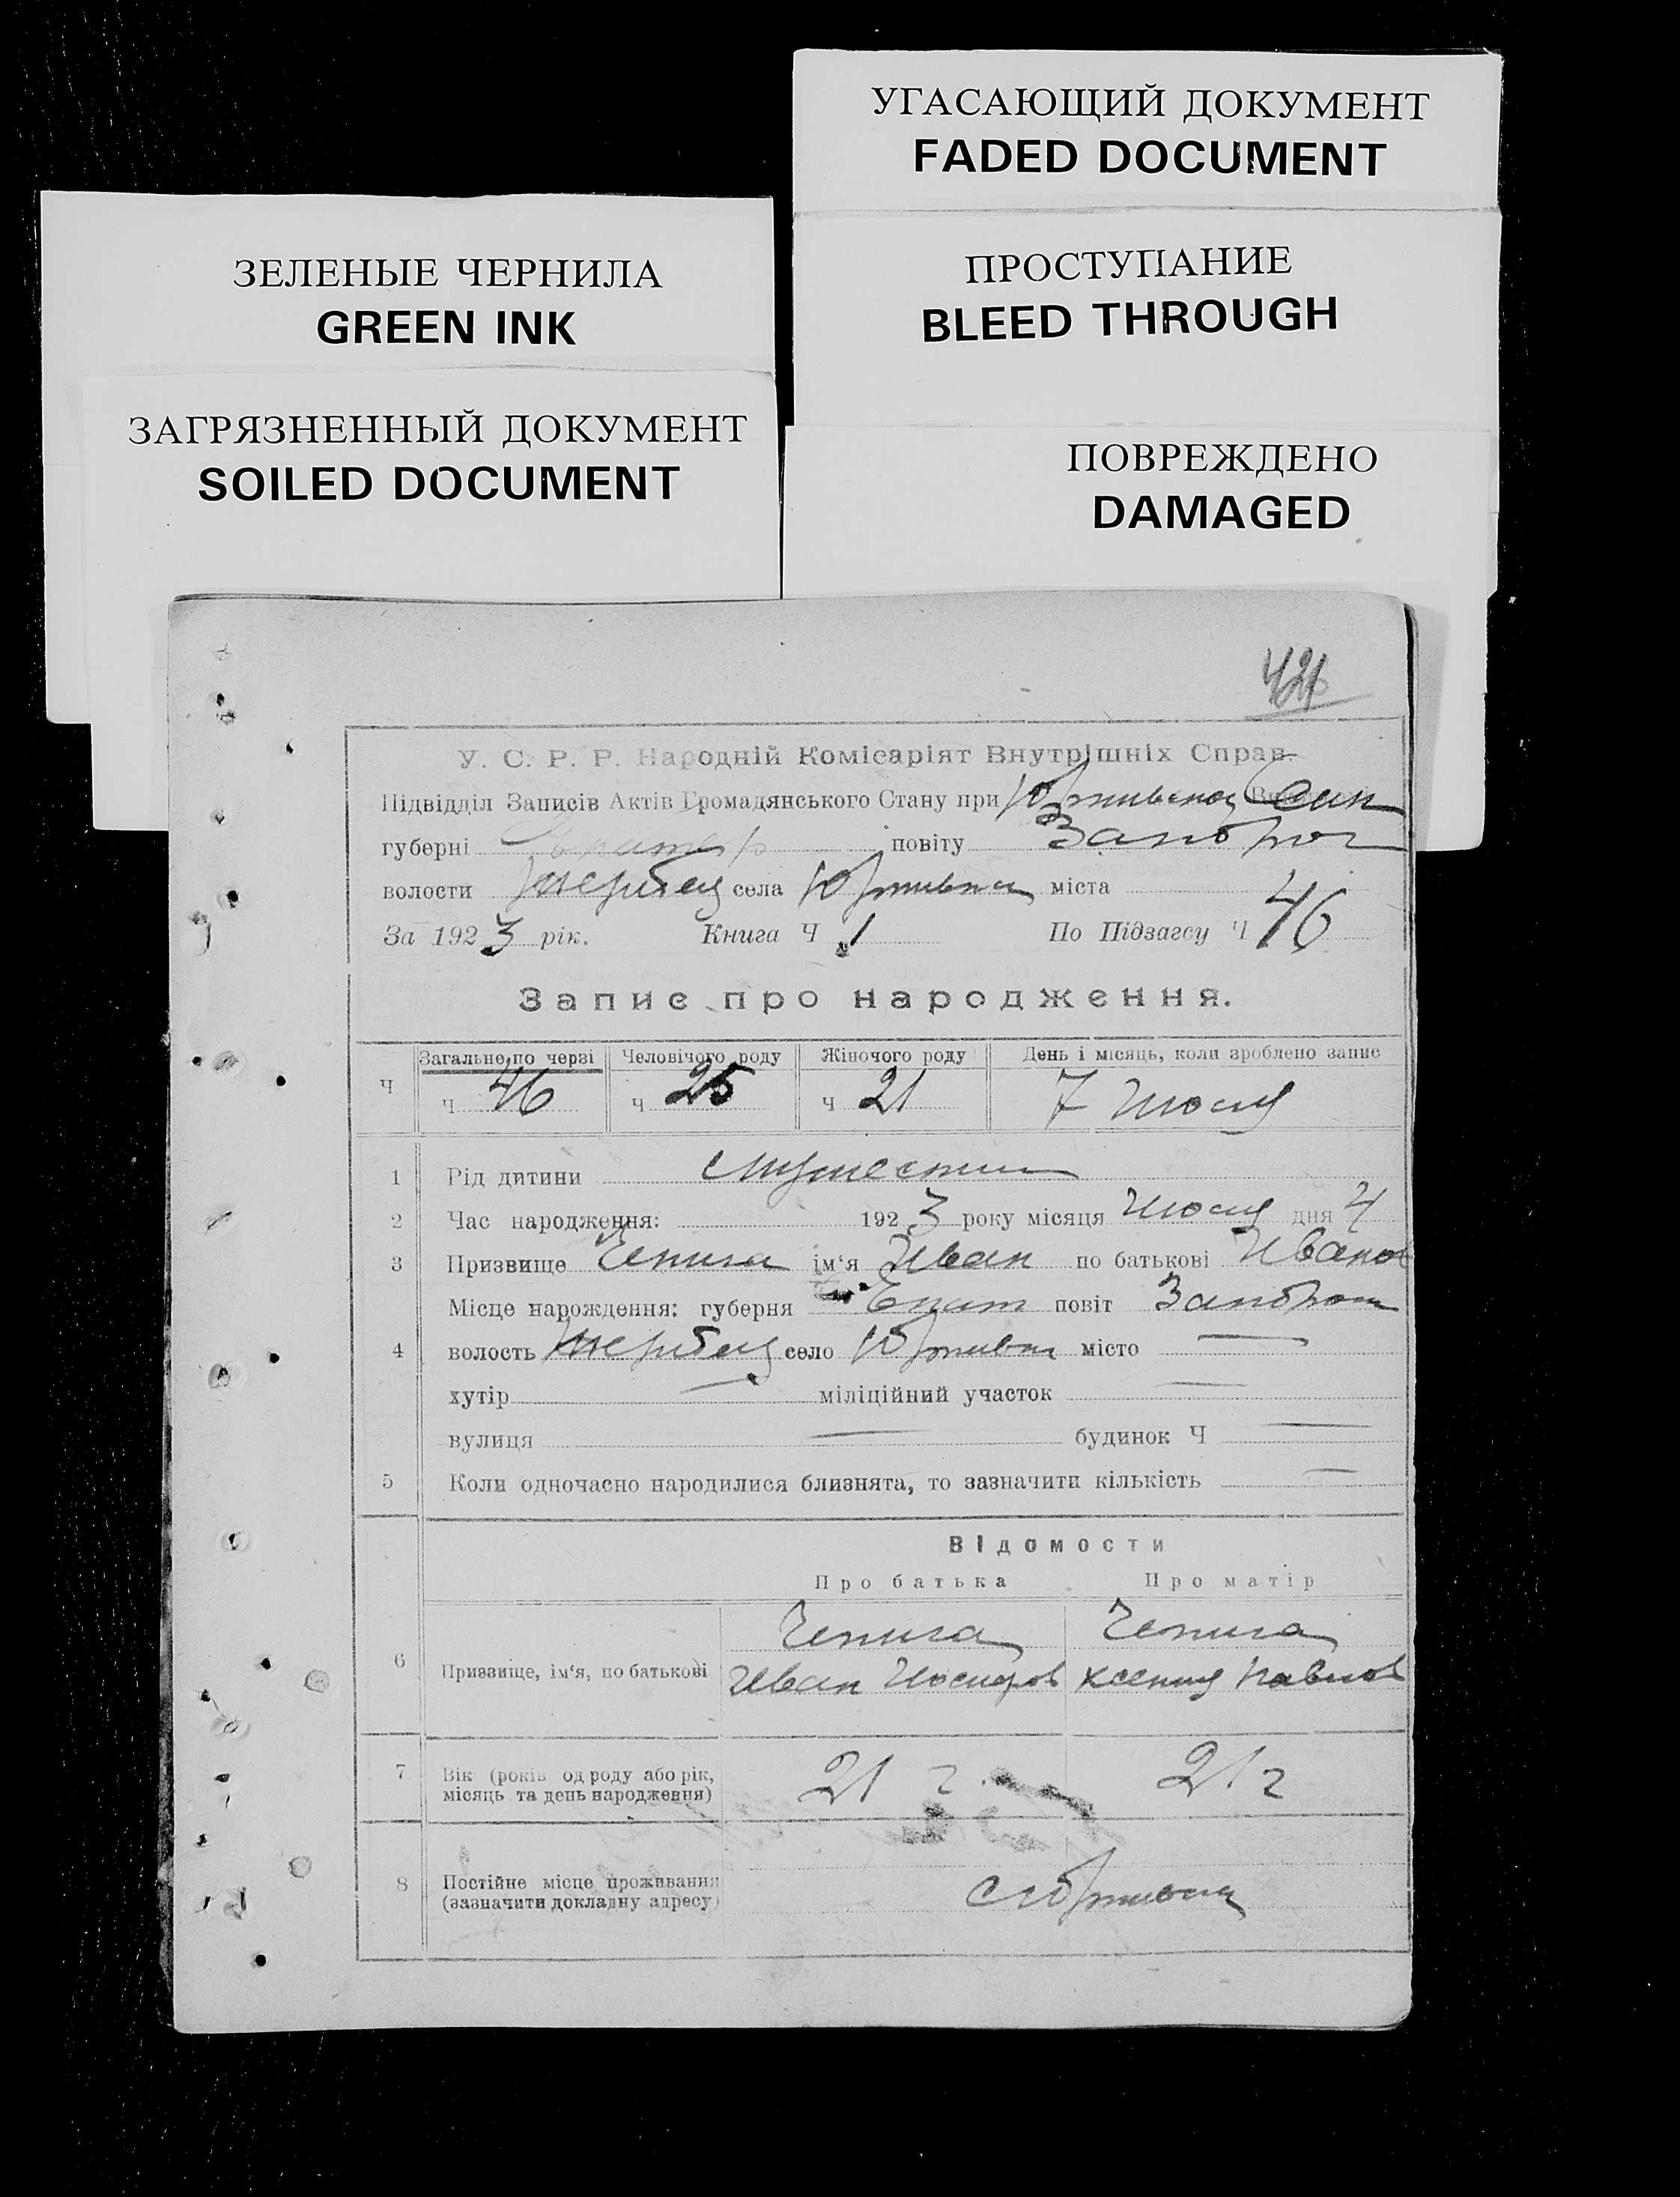 УГАСАЮЩИЙ ДОКУМЕНТ
FADED DOCUMENT
ЗЕЛЕНЫЕ ЧЕРНИЛА
GREEN INK
ПРОСТУПАНИЕ
BLEED THROUGH
ЗАГРЯЗНЕННЫЙ ДОКУМЕНТ
SOILED DOCUMENT
ПОВРЕЖДЕНО
DAMAGED
421
У. С. Р. Р. Народній Комісаріят Внутрішніх Справ.
Підвідділ Записів Актів Громадянського Стану при
губерні повіту Запорож
волости Жеребец села Юрківка міста
За 1923 рік. Книга Ч 1 По Підзагсу Ч 46
Запис про народження.
Загальне по черзі Человічого роду Жіночого роду День і місяць, коли зроблено запис
Ч Ч 46 Ч 25 Ч 21 7 Июля
1 Рід дитини мужеский
2 Час народження: 1923 року місяця Июля дня 4
3 Призвище Чепига ім‘я Иван по батькові Иванов
Місце нарождення: губерня Екат повіт Запорож
4 волость Жеребец село Юрківка місто —
хутір — міліційний участок —
вулиця — будинок Ч —
5 Коли одночасно народилися близнята, то зазначити кількість —
Відомости
Про батька Про матір
Чепига Чепига
6 Призвище, ім‘я, по батькові Иван Иосифов Ксения Павлов
7 Вік (років од роду або рік, 21 г. 21 г
місяць та день народження)
8 Постійне місце проживання
(зазначити докладну адресу)